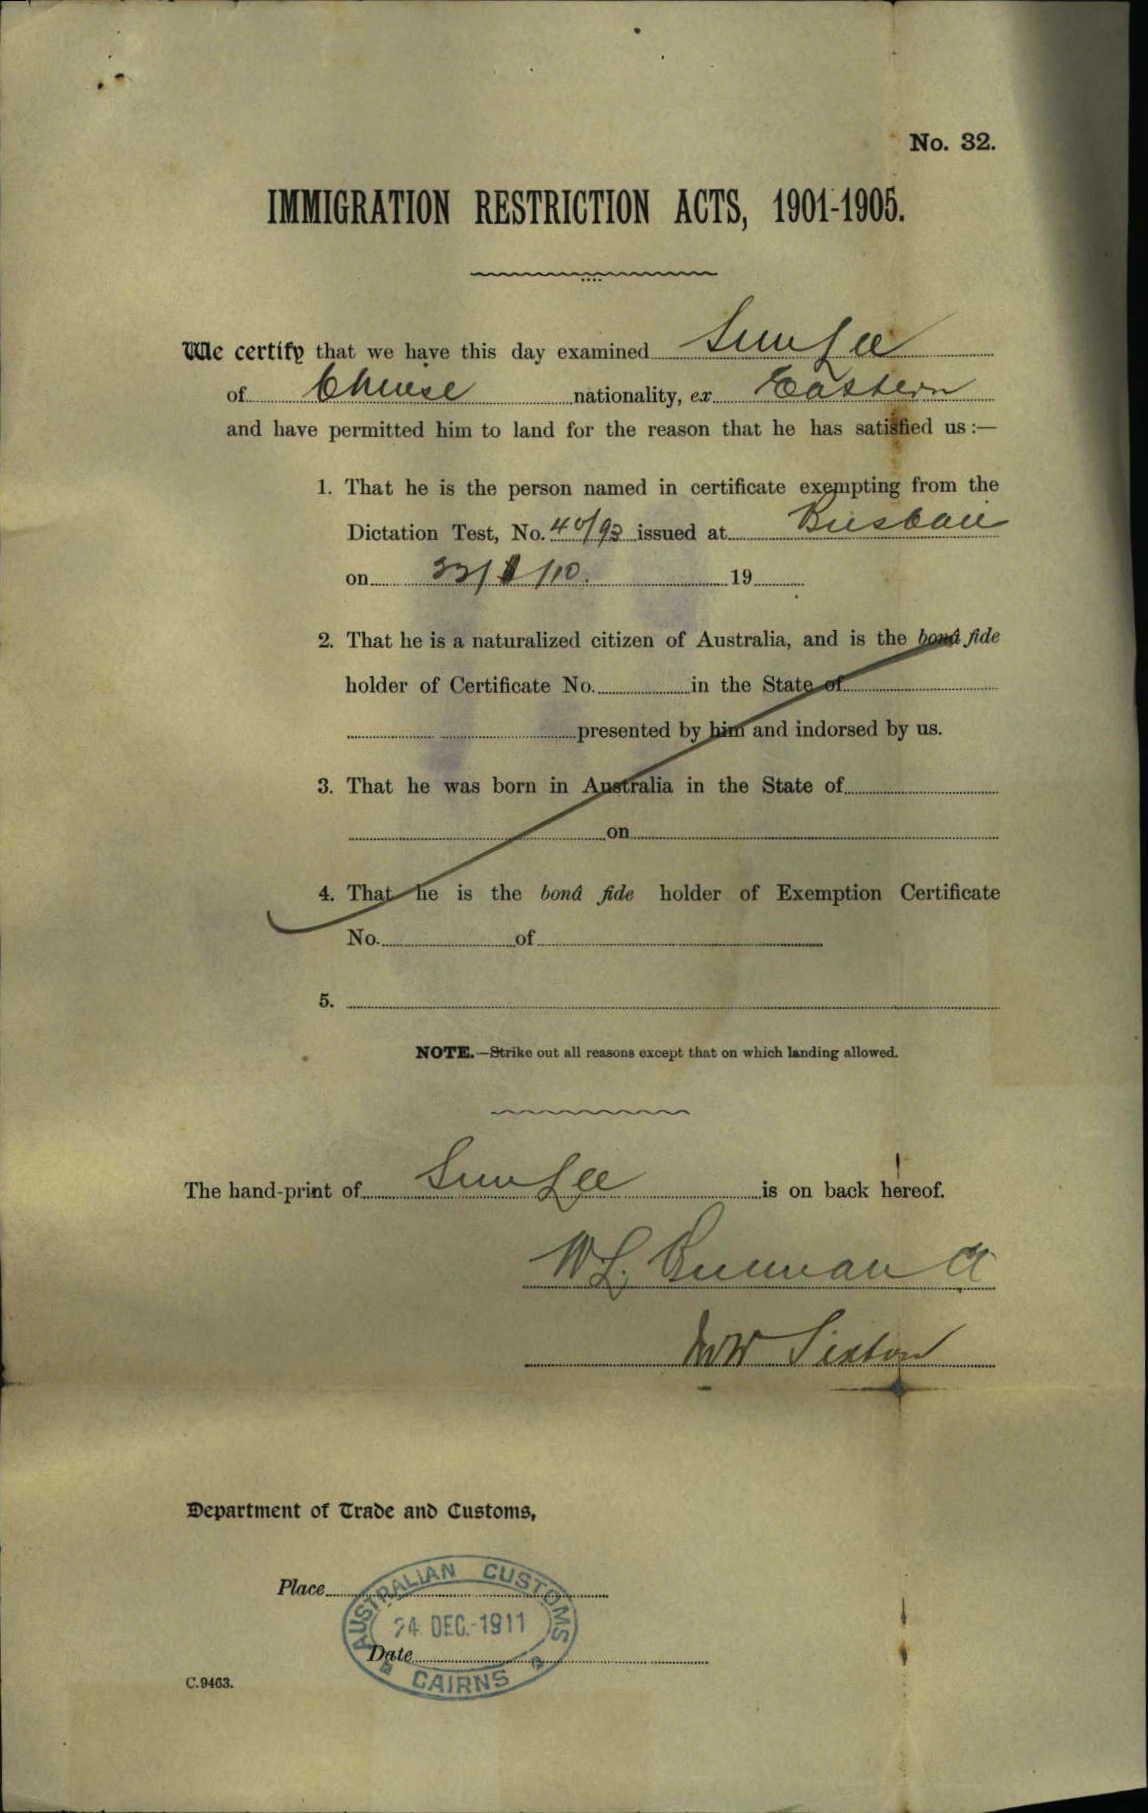 No. 32.
IMMIGRATION RESTRICTION ACTS, 1901-1905.
We certify that we have this day examined Sum Lee
of Chinese nationality, ex Eastern
and have permitted him to land for the reason that he has satisfied us :—
1. That he is the person named in certificate exempting from the
Dictation Test, No. 40/93 issued at Brisbane
on /10. 19
2. That he is a naturalized citizen of Australia, and is the bonâ fide
holder of Certificate No. in the State of
presented by him and indorsed by us.
3. That he was born in Australia in the State of
on
4. That he is the bonâ fide holder of Exemption Certificate
No. of
5.
NOTE.—Strike out all reasons except that on which landing allowed.
The hand-print of Sum Lee is on back hereof.
W L
Sexton
Department of Trade and Customs,
Place
AUSTRALIAN CUSTOMS
24 DEC.-1911
Date
CAIRNS
C.9463.